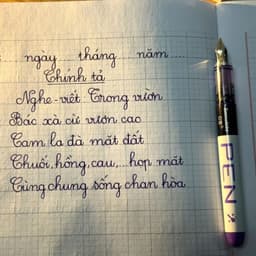 ngày tháng năm
Chính tả
Nghe-viết Trong vườn
Bác xà cừ vươn cao
Cam la đà mặt đất
Chuối, hồng, cau,... họp mặt
Cùng chung sống chan hòa
PEN